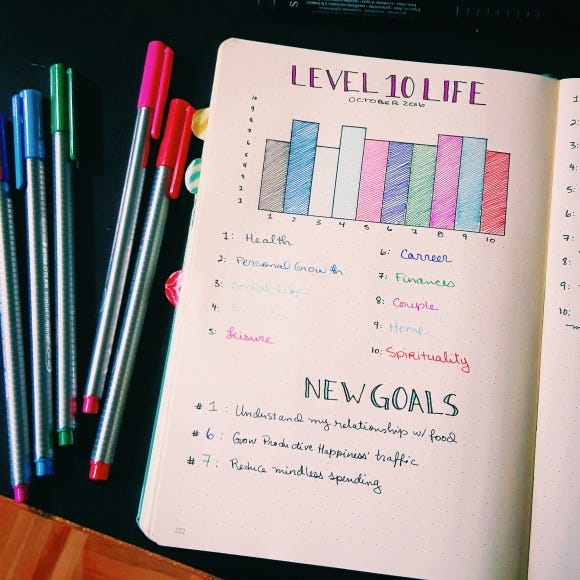 LEVEL 10 LIFE
OCTOBER 2016
10
9
8
7
6
5
4
3
2
1
1 2 3 4 5 6 7 8 9 10
1: Health
2: Personal Growth
3: Social Life
4:
5: Leisure
6: Carreer
7: Finances
8: Couple
9: Home
10: Spirituality
NEW GOALS
# 1: Understand my relationship w/ food
# 6: Grow Productive Happiness' traffic
# 7: Reduce mindless spending
222